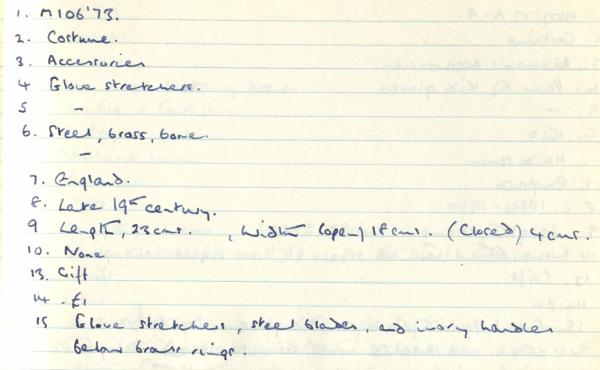 1. M106'73.
2. Costume.
3. Accessories
4 Glove stretchers.
5 -
6. Steel, brass, bone.
-
7. England.
8. Late 19th century.
9 Length, 23cms. , Width (open) 18cms. (Closed) 4cms.
10. None
13. Gift
14 . £1
15 Glove stretchers, steel blades, and ivory handles
below brass rings.